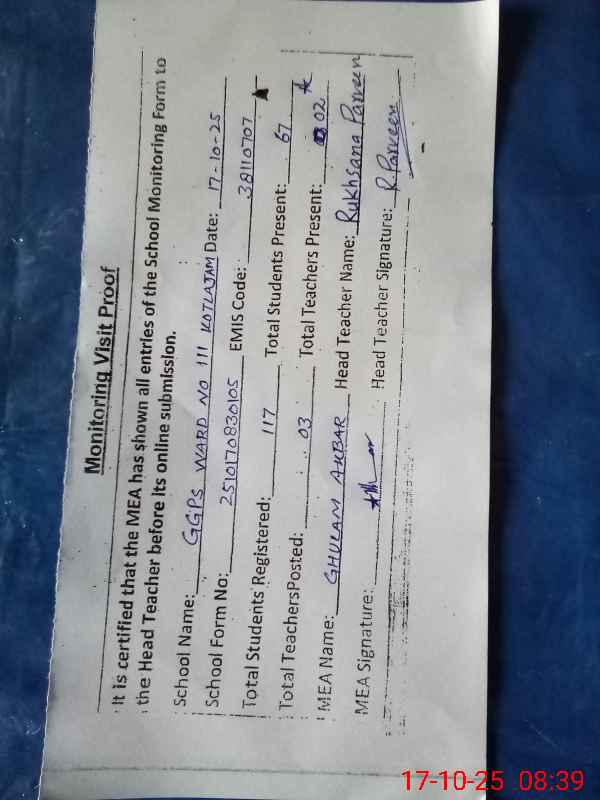 Monitoring Visit Proof
It is certified that the MEA has shown all entries of the School Monitoring Form to
the Head Teacher before its online submission.
School Name: GGPS WARD NO 111 KOTLAJAM Date: 17-10-25
School Form No: 2510170830105 EMIS Code: 38110707
Total Students Registered: 117 Total Students Present: 67
Total TeachersPosted: 03 Total Teachers Present: 02
MEA Name: GHULAM AKBAR Head Teacher Name: Rukhsana Parveen
MEA Signature: Head Teacher Signature: R.Parveen
17-10-25 08:39